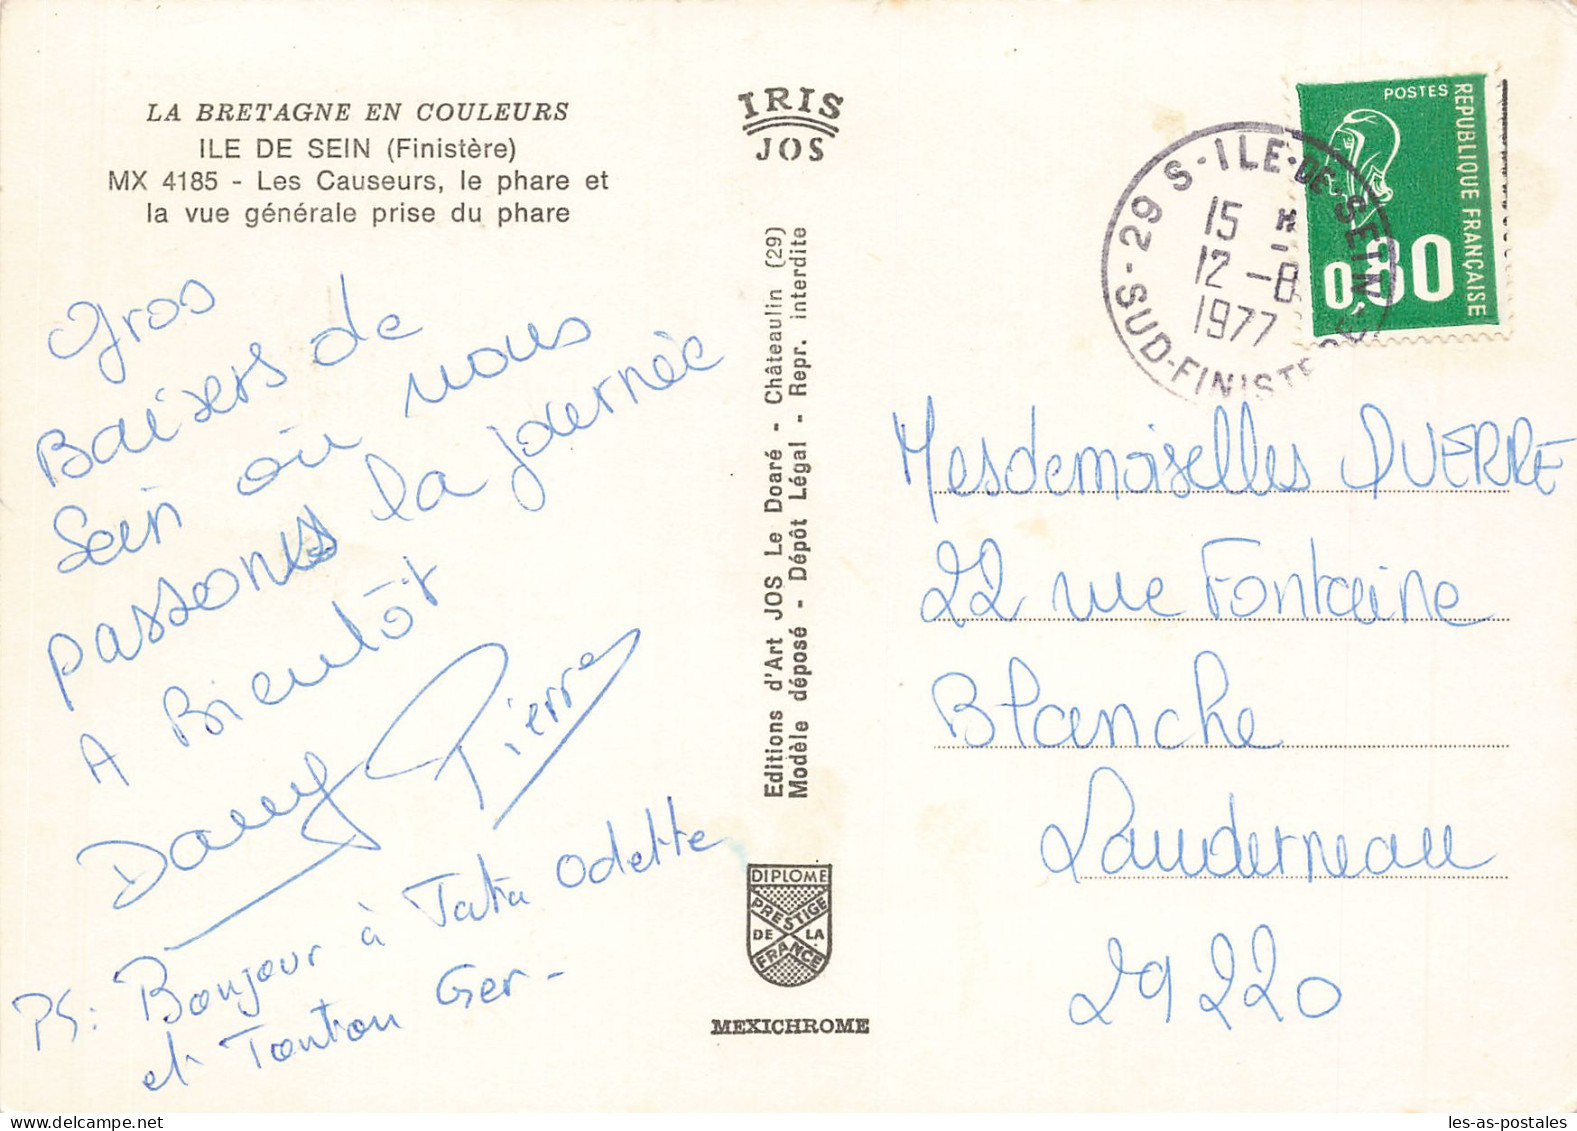 LA BRETAGNE EN COULEURS
ILE DE SEIN (Finistère)
MX 4185 - Les Causeurs, le phare et
la vue générale prise du phare
Gros
Baisers de
Sein où nous
passons la journée
A Bientôt
Dany Pierre
PS: Bonjour à Tata Odette
et Tonton Ger -
IRIS
JOS
Editions d'Art JOS Le Doaré - Châteaulin (29)
Modèle déposé - Dépôt Légal - Repr. interdite
DIPLOME
PRESTIGE
DE LA
FRANCE
MEXICHROME
POSTES
REPUBLIQUE FRANÇAISE
0,80
S-ILE-DE-SEIN-S
15 H
12 -8
1977
S-29
SUD-FINISTERE
Mesdemoiselles QUERRE
22 rue Fontaine
Blanche
Landerneau
29220
les-as-postales